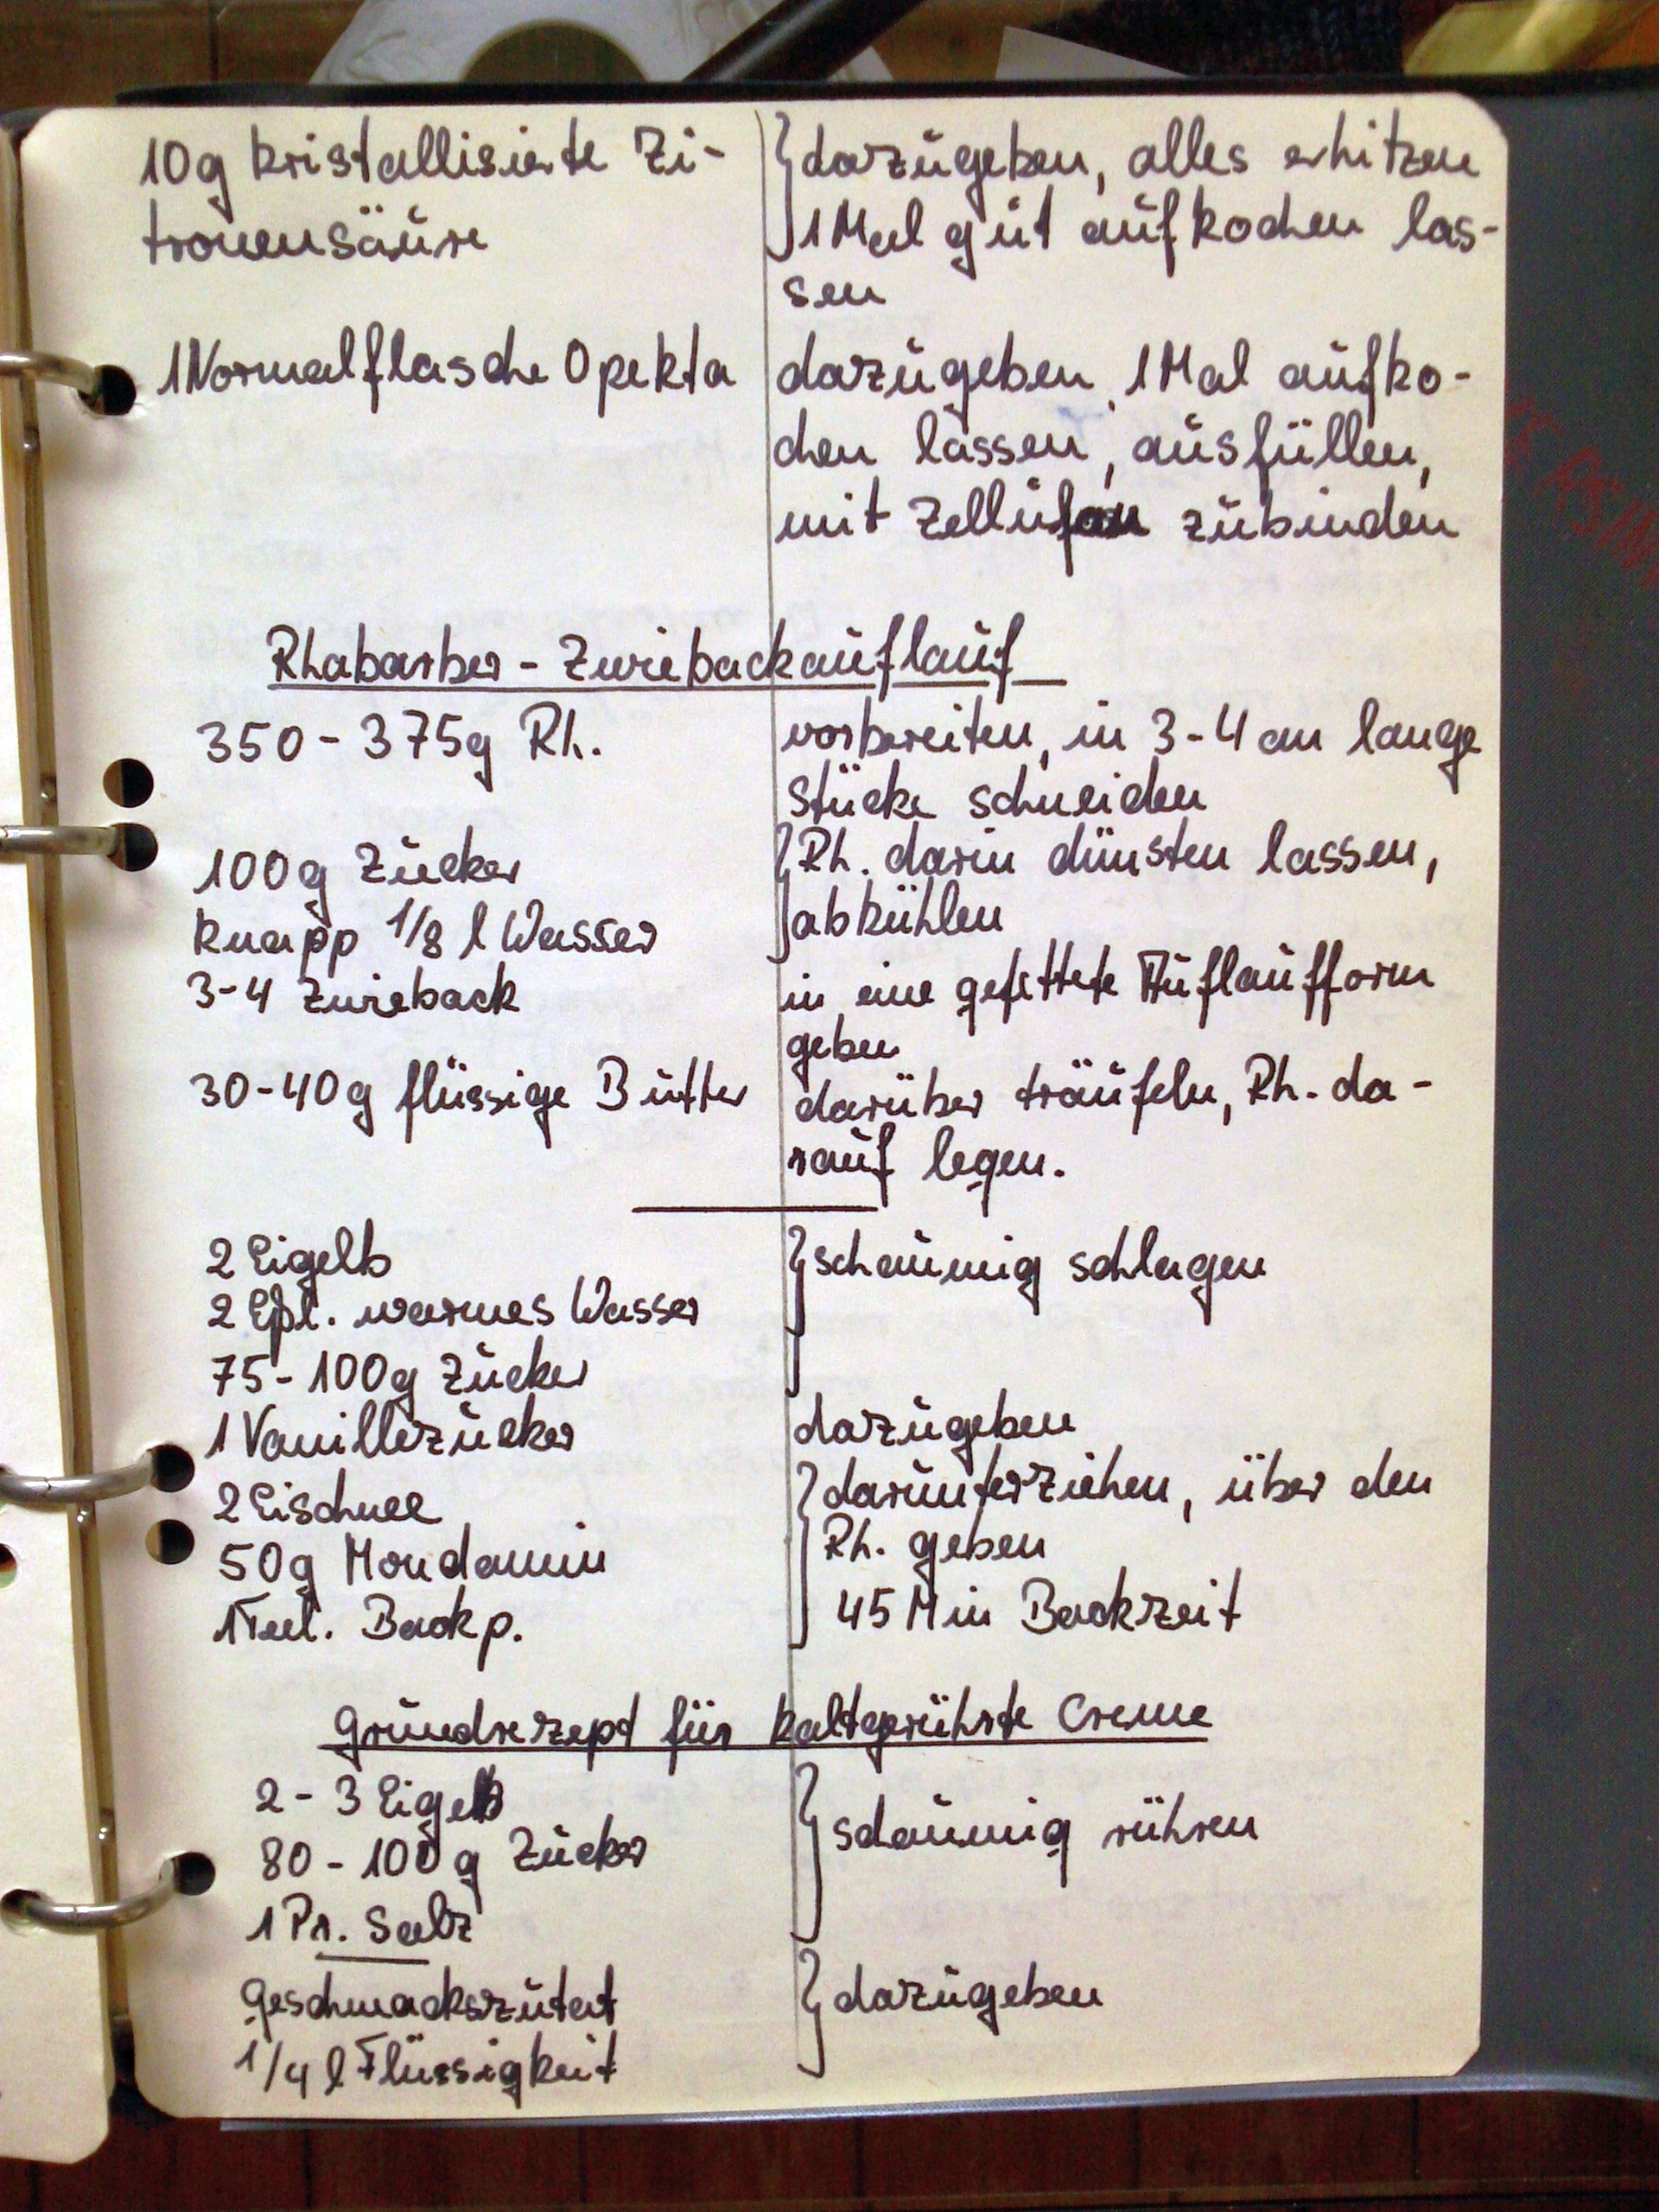 10g kristallisierte Zi-
tronensäure
}dazugeben, alles erhitzen
1 Mal gut aufkochen las-
sen
1 Normalflasche Opekta
dazugeben, 1 Mal aufko-
chen lassen, ausfüllen,
mit Zellufan zubinden
Rhabarber - Zwiebackauflauf
350 - 375g Rh.
vorbereiten, in 3-4 cm lange
Stücke schneiden
100g Zucker
knapp 1/8 l Wasser
}Rh. darin dünsten lassen,
abkühlen
3-4 Zwieback
in eine gefettete Auflaufform
geben
30-40g flüssige Butter
darüber träufeln, Rh. da-
rauf legen.
2 Eigelb
2 Eßl. warmes Wasser
75-100g Zucker
}schaumig schlagen
1 Vanillezucker
dazugeben
2 Eischnee
50g Mondamin
1 Teel. Backp.
}darunterziehen, über den
Rh. geben
45 Min Backzeit
Grundrezept für kaltgerührte Creme
2 - 3 Eigelb
80 - 100 g Zucker
1 Pr. Salz
}schaumig rühren
Geschmackszutat
1/4 l Flüssigkeit
}dazugeben